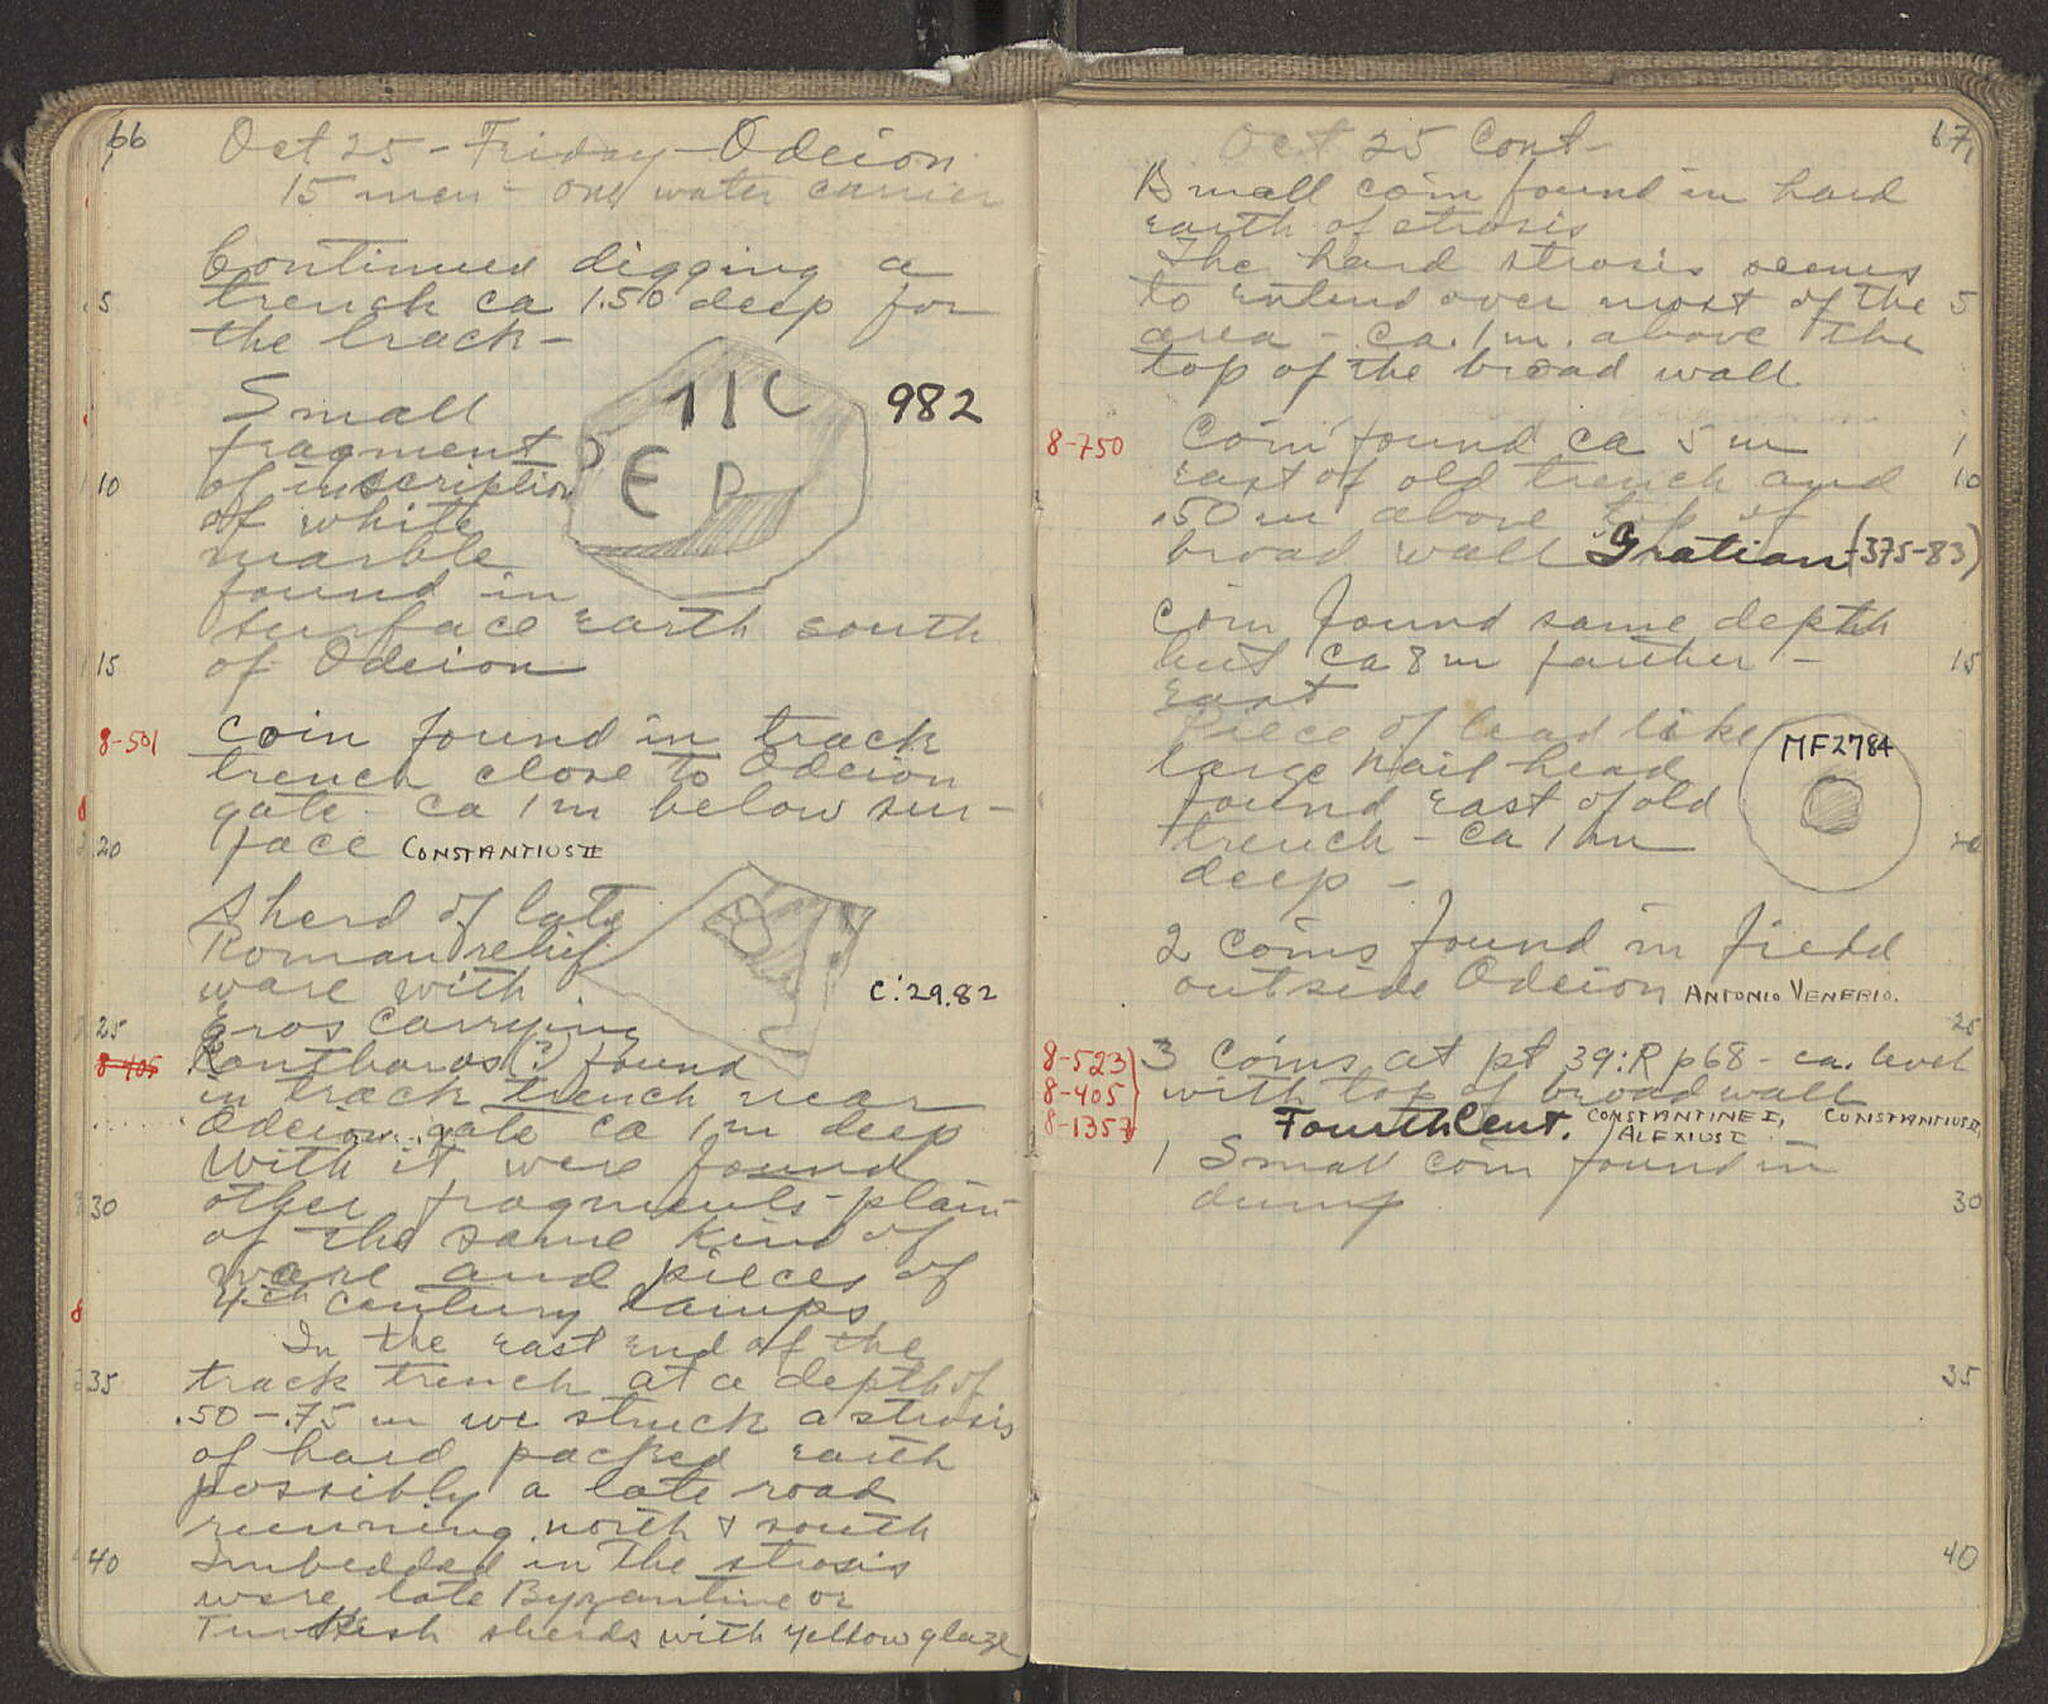 66
Oct 25 - Friday - Odeion
15 men - one water carrier
Continued digging a
5 trench ca 1.50 deep for
the track -
Small
fragment
10 of inscription
of white
marble
found in
surface earth south
15 of Odeion
982
ΠΕΡ
8-501 Coin found in track
trench close to Odeion
gate - ca 1 m below sur-
20 face CONSTANTIUS II
Sherd of late
Roman relief
ware with
25 Eros carrying
8-405 Kantharos (?) found
in track trench near
Odeion gate ca 1 m deep
With it were found
30 other fragments - plain -
of the same kind of
ware and pieces of
4th century lamps
C:29.82
In the east end of the
35 track trench at a depth of
.50 - .75 m we struck a strosis
of hard packed earth
possibly a late road
running north & south
40 Imbedded in the strosis
were late Byzantine or
Turkish sherds with yellow glaze
67
Oct 25 Cont -
1 Small coin found in hard
earth of strosis
The hard strosis seems
to extend over most of the 5
area - ca. 1 m. above the
top of the broad wall
8-750 Coin found ca 5 m 1
east of old trench and 10
.50 m above top of
broad wall Gratian (375-83)
Coin found same depth
but ca 8 m farther - 15
east
Piece of lead like
large nail head
found east of old
trench - ca 1 m 20
deep -
MF2784
2 coins found in field
outside Odeion ANTONIO VENERIO.
25
8-523 3 Coins at pt 39:R p68 - ca. level
8-405 with top of broad wall
8-1357 Fourth Cent. CONSTANTINE I, CONSTANTIUS II,
ALEXIUS I
1 Small coin found in
dump 30
35
40